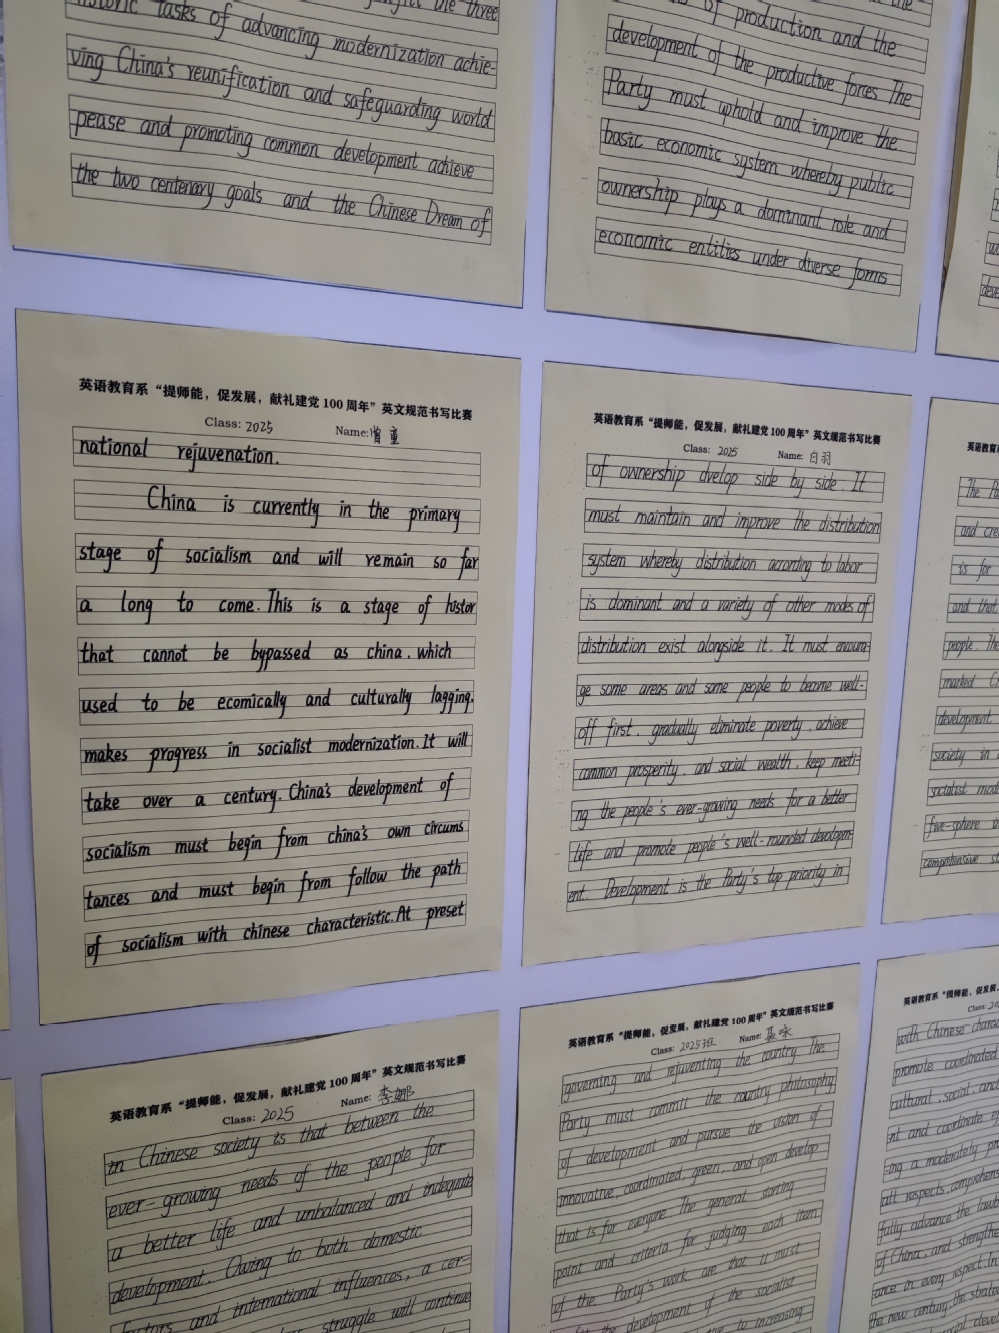 historic tasks of advancing modernization achie-
ving China's reunification and safeguarding world
pease and promoting common development achieve
the two centenary goals and the Chinese Dream of
of production and the
development of the productive forces The
Party must uphold and improve the
basic economic system whereby public
ownership plays a dominant role and
economic entities under diverse forms
英语教育系“提师能，促发展，献礼建党100周年”英文规范书写比赛
Class: 2025 Name: 曾童
national rejuvenation.
China is currently in the primary
stage of socialism and will remain so far
a long to come. This is a stage of histor
that cannot be bypassed as china. which
used to be ecomically and culturally lagging.
makes progress in socialist modernization. It will
take over a century. China's development of
socialism must begin from china's own circums
tances and must begin from follow the path
of socialism with chinese characteristic. At preset
英语教育系“提师能，促发展，献礼建党100周年”英文规范书写比赛
Class: 2025 Name: 白羽
of ownership dvelop side by side. It
must maintain and improve the distribution
system whereby distribution according to labor
is dominant and a variety of other modes of
distribution exist alongside it. It must encoura-
ge some areas and some people to become well-
off first. gradually eliminate poverty, achieve
common prosperity, and social wealth, keep meeti-
ng the people's ever-growing needs for a better
life and promote people's well-rounded developm-
ent. Development is the Party's top priority in
英语教育
The
and
is for
and that
people. The
marked
development
society in
socialist
five-sphere
comprehensive
英语教育系“提师能，促发展，献礼建党100周年”英文规范书写比赛
Class: 2025 Name: 李娜
in Chinese society is that between the
ever-growing needs of the people for
a better life and unbalanced and indequate
development. Owing to both domestic
factors and international influences, a cer-
struggle will continue
英语教育系“提师能，促发展，献礼建党100周年”英文规范书写比赛
Class: 2025班 Name: 聂咏
governing and rejuventing the country The
Party must commit the country philosophy
of development and pursue the vision of
innovative, coordinated, green, and open develop
that is for everyone The general starting
point and criteria for judging each item
of the Party's work are that it must
development of the socialist
to increasing
英语教育系“提师能，促发展，
Class:
with Chinese
promote coordinated
cultural, social, and
nt and coordinate
ing a moderately
all respects,
fully advance the
of China, and strengthen
ance in every respect. In
the new century, the